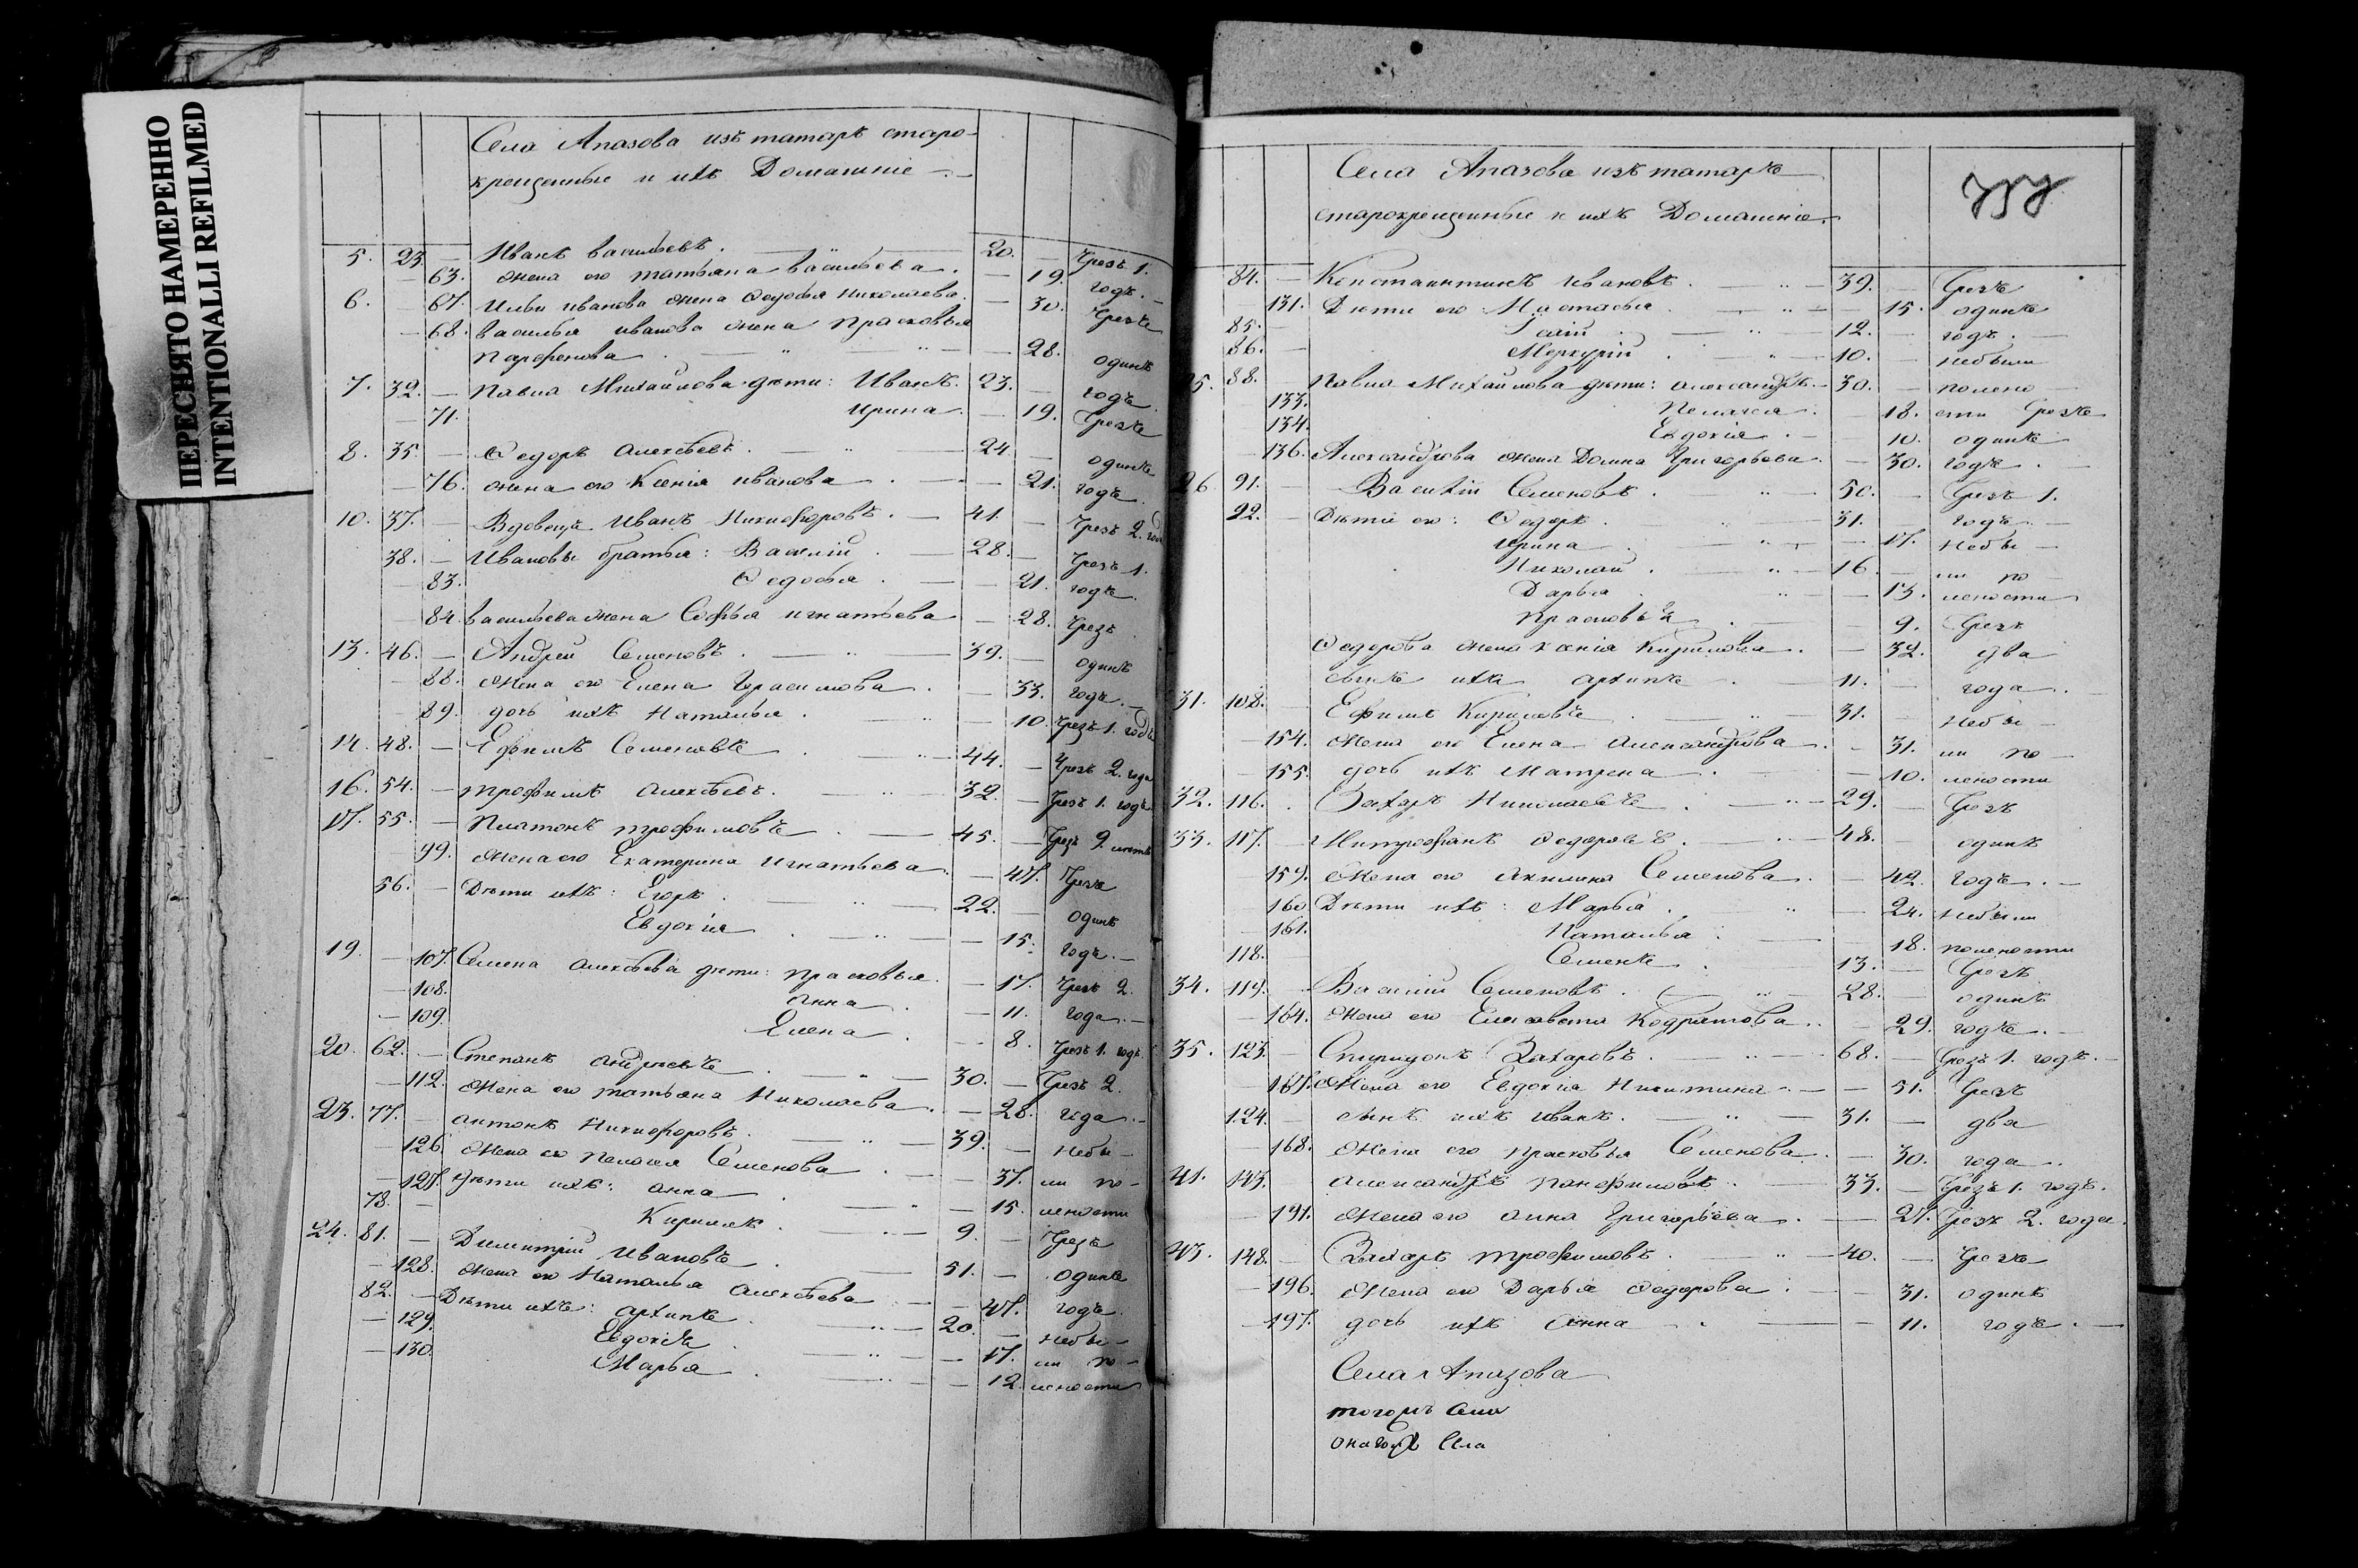 ПЕРЕСНЯТО НАМЕРЕННО
INTENTIONALLI REFILMED
Села Апазова изъ татаръ старо-
крещенные и ихъ Домашніе
5. 23. — Иванъ Васильевъ. 20. — Чрезъ 1.
— 63. Жена его Татьяна Васильева. — 19. годъ.
6. — 67. Ильи Иванова жена Федосья Николаева. — 30. Чрезъ
— 68. Василья Иванова жена Прасковья
Парфенова — 28. одинъ
7. 32. — Павла Михайлова дѣти: Иванъ. 23. — годъ.
— 71. Ирина. — 19. Чрезъ
8. 35. — Федоръ Алексѣевъ. 24 — одинъ
— 76. жена его Ксенія Иванова — 21. годъ.
10. 37. — Вдовецъ Иванъ Никифоровъ. 41. — Чрезъ 2. года
38. — Ивановы братья: Василій 28. — Чрезъ 1.
83. Федосья — 21. годъ.
— 84. Васильева жена Софья Игнатьева — 28. Чрезъ
13. 46. — Андрей Семеновъ. 39. — одинъ
— 88. Жена его Елена Герасимова — 33. годъ.
— 89. дочь ихъ Наталья. — 10. Чрезъ 1. годъ
14. 48. — Ефимъ Семеновъ 44. — Чрезъ 2. года
16. 54. — Трофимъ Алексѣевъ. 32. — Чрезъ 1. годъ
17. 55. — Платонъ Трофимовъ 45. — Чрезъ 2
— 99. Жена его Екатерина Игнатьева — 47. Чрезъ
56. — Дѣти ихъ: Егоръ. 22. — одинъ
Евдокія — 15. годъ.
19. — 107. Семена Алексѣева дѣти: Прасковья. — 17. Чрезъ 2.
— 108. Анна — 11. года.
— 109. Елена — 8. Чрезъ 1. годъ.
20. 62. — Степанъ Андреевъ 30. — Чрезъ 2.
— 112. Жена его Татьяна Николаева — 28. года.
23. 77. — Антонъ Никифоровъ. 39. — Небы-
— 126. Жена его Пелагея Семенова — 37. ли по-
— 127. Дѣти ихъ: Анна — 15. лености
78. — Кирилъ. 9. — Чрезъ
24. 81. — Дмитрій Ивановъ 51. — одинъ
— 128. Жена его Наталья Алексѣева — 47. годъ.
82. — Дѣти ихъ: Архипъ 20. — Небы-
— 129. Евдокія — 17. ли по-
— 130. Марья — 12. лености
Села Апазова изъ татаръ
старокрещенные и ихъ Домашніе.
84. — Константинъ Ивановъ. 39. — Чрезъ
131. Дѣти его: Настасья — 15. одинъ
85. — 12. — годъ.
86. — Меркурій 10. — Небыли
25. 88. — Павла Михайлова дѣти: Александръ. 30. — полено
133. Пелагея. — 18. сти Чрезъ
134. Евдокія. — 10. одинъ
— 136. Александрова жена Домна Григорьева — 30. годъ.
26. 91. — Василій Семеновъ. 50. — Чрезъ 1.
92. — Дѣти его: Федоръ. 31. — годъ.
Ирина — 17. Небы-
Николай. 16. — ли по-
Дарья — 13. лености
Прасковья — 9. Чрезъ
Федорова жена Ксенія Кирилова. — 32. два
сынъ ихъ Архипъ 11. — года.
31. 108. — Ефимъ Кириловъ 31. — Небы-
— 154. Жена его Елена Александрова. — 31. ли по-
— 155. дочь ихъ Матрена — 10. лености
32. 116. Захаръ Николаевъ 29. — Чрезъ
33. 117. — Митрофанъ Федоровъ. 48. — одинъ
— 159. Жена его Акилина Семенова. — 42. годъ.
— 160. Дѣти ихъ: Марья. — 24. Небыли
— 161. Наталья 18. полености
118. Семенъ 13. — Чрезъ
34. 119. — Василій Семеновъ. 28. — одинъ
— 164. Жена его Елисавета Кодратова. — 29. годъ.
35. 123. — Спиридонъ Захаровъ. 68. — Чрезъ 1. годъ.
— 167. Жена его Евдокія Никитина — 51. Чрезъ
124. — сынъ ихъ Иванъ. 31. — два
— 168. Жена его Прасковья Семенова. — 30. года.
41. 143. Александръ Панфиловъ. 33. — Чрезъ 1. годъ.
— 191. Жена его Анна Григорьева. — 27. Чрезъ 2. года.
43. 148. — Захаръ Трофимовъ. 40. — Чрезъ
— 196. Жена его Дарья Федорова — 31. одинъ
— 197. дочь ихъ Анна — 11. годъ.
Села Апазова